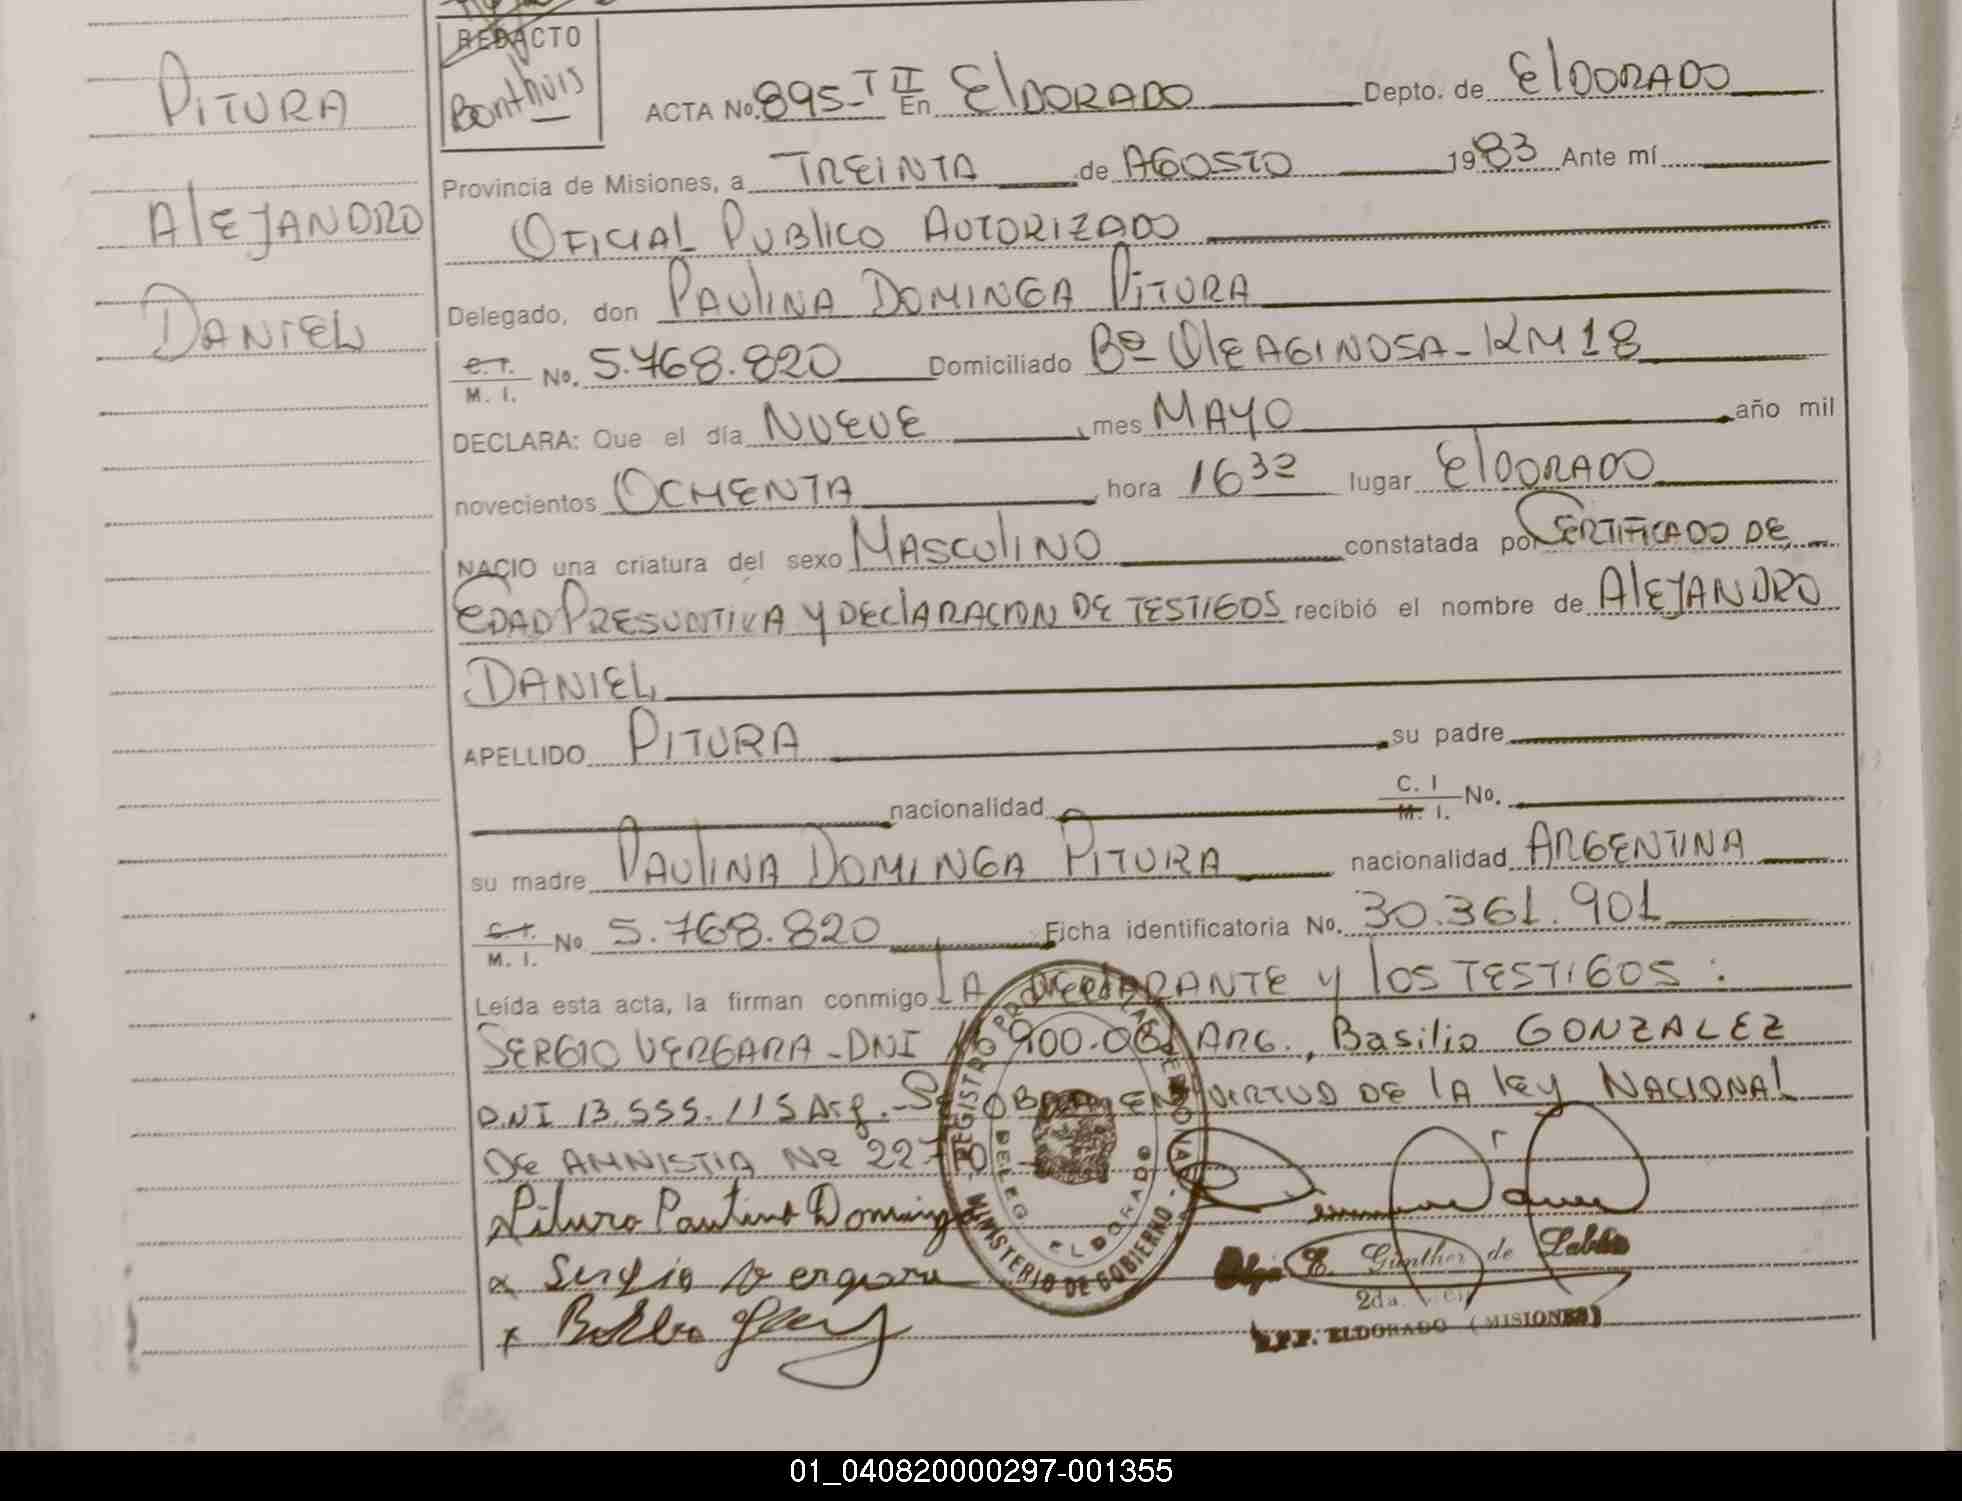 PITURA
ALEJANDRO
DANIEL
REDACTO
Bonthuis
ACTA No. 895-T II En ElDORADO Depto. de ElDORADO
Provincia de Misiones, a TREINTA de AGOSTO 1983 Ante mí
OFICIAL PUBLICO AUTORIZADO
Delegado, don PAULINA DOMINGA PITURA
C. I. / M. I. No. 5.768.820 Domiciliado Bº OLEAGINOSA - KM 18
DECLARA: Que el día NUEVE, mes MAYO año mil
novecientos OCHENTA, hora 16 32 lugar ElDORADO
NACIO una criatura del sexo MASCULINO constatada por CERTIFICADO DE
EDAD PRESUNTIVA Y DECLARACION DE TESTIGOS recibió el nombre de ALEJANDRO
DANIEL
APELLIDO PITURA su padre
nacionalidad C. I / M. I. No.
su madre PAULINA DOMINGA PITURA nacionalidad ARGENTINA
C. I. / M. I. No 5.768.820 Ficha identificatoria No. 30.361.901
Leída esta acta, la firman conmigo LA DECLARANTE Y LOS TESTIGOS:
SERGIO VERGARA - DNI 900.06 ARG., Basilio GONZALEZ
DNI 13.555.115 Arg. - EN VIRTUD DE LA LEY NACIONAL
DE AMNISTIA Nº 22
Pitura Paulina Dominga
x Sergio Vergara
x
REGISTRO PROVINCIAL DE LAS PERSONAS
MINISTERIO DE GOBIERNO
DELEG. ELDORADO
E. Günther de
2da.
ELDORADO (MISIONES)
01_040820000297-001355